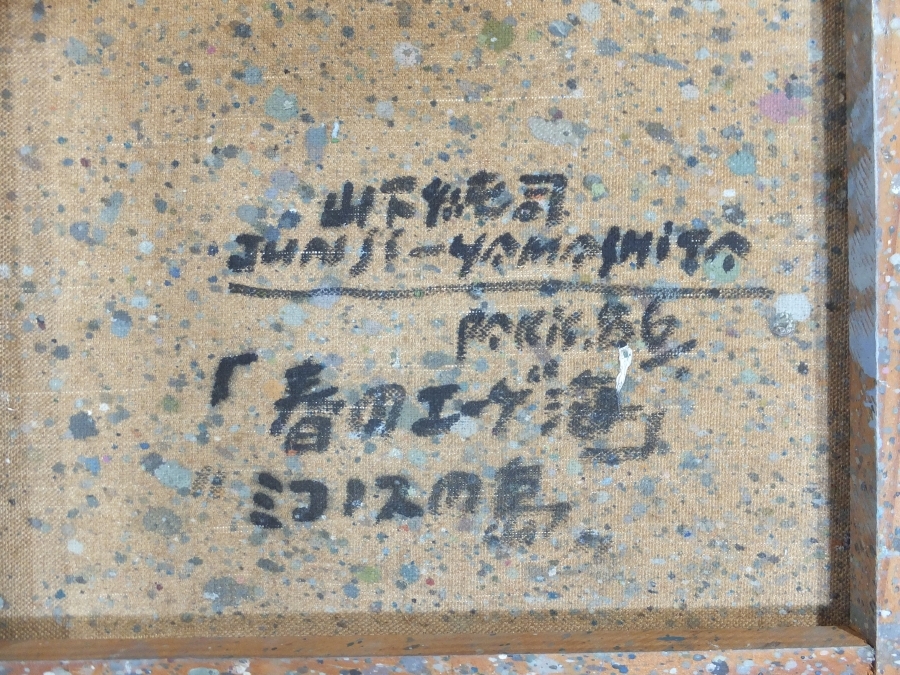 山下純司
JUNJI-YAMASHITA
PARIS.86
「春のエーゲ海」
"ミコノスの島"